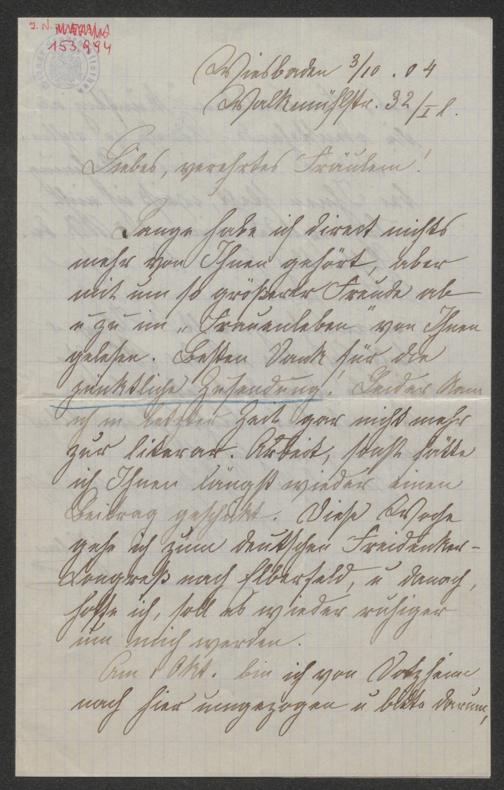 J. N.
153.994
Wiesbaden 3/10. 04
Walkmühlstr. 32/I l.
Liebes, verehrtes Fräulein!
Lange habe ich direct nichts
mehr von Ihnen gehört, aber
mit um so größerer Freude ab
u zu im „Frauenleben" von Ihnen
gelesen. Besten Dank für die
pünktliche Zusendung! Leider kam
ich in letzter Zeit gar nicht mehr
zur literar. Arbeit, sonst hätte
ich Ihnen längst wieder einen
Beitrag geschickt. Diese Woche
gehe ich zum deutschen Freidenker-
Congreß nach Elberfeld, u danach,
hoffe ich, soll es wieder ruhiger
um mich werden.
Am 1 Okt. bin ich von Dotzheim
nach hier umgezogen u bitte darum,